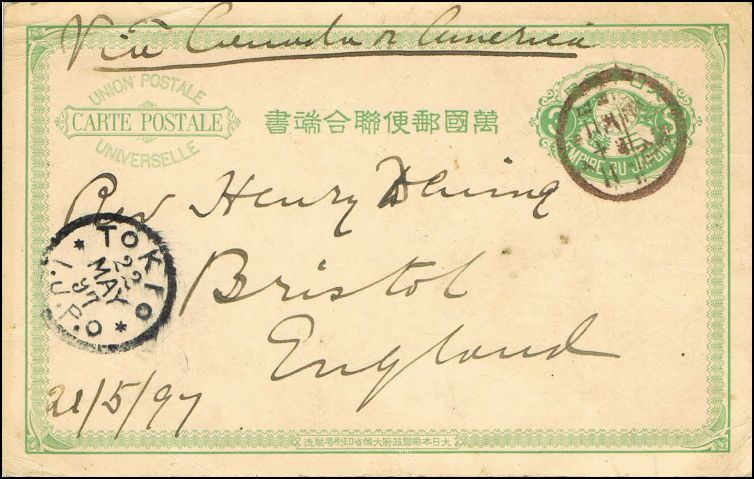 Via Canada or America
UNION POSTALE
CARTE POSTALE
UNIVERSELLE
書端合聯便郵國萬
3 S
EMPIRE DU JAPON
Rev Henry
Bristol
England
TOKIO
22
MAY
97
I.J.P.O
21/5/97
造製局刷印省藏大府政國帝本日大